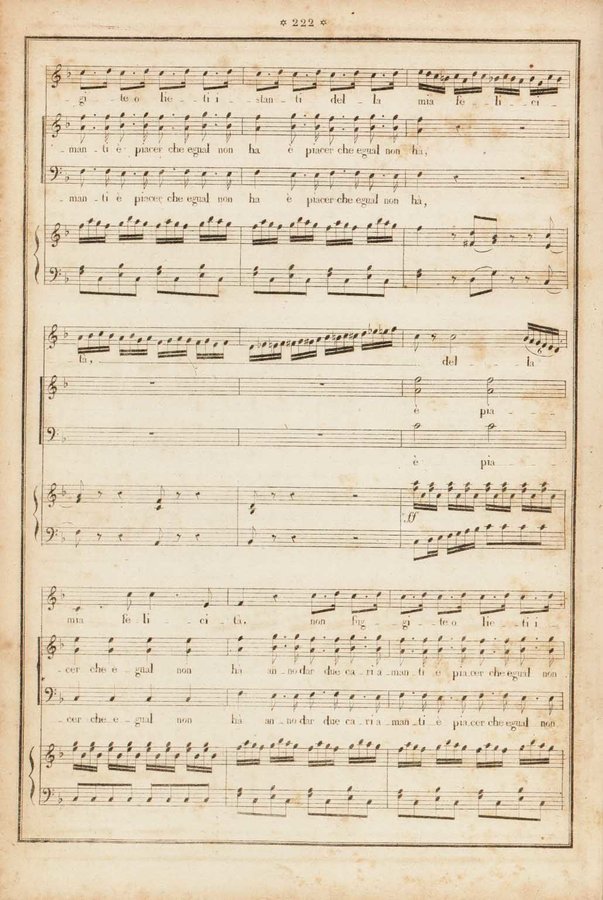 ✡ 222 ✡
gi_ te o lie_ ti i_ stan_ ti del_ la mia fe_ li_ ci_
_man_ ti è piacer che egual non ha è piacer che egual non hà,
_man_ ti è piacer che egual non ha è piacer che egual non hà,
tà, del_ la
è pia_
ff
è pia_
mia fè li_ ci_ tà, non fug_ gi_ te o lie_ ti i_
_cer che e_ gual non hà an_no dar due ca_ri a_man_ti è pia_cer che egual non
_cer che e_ gual non hà an_no dar due ca_ri a_man_ti è pia_cer che egual non